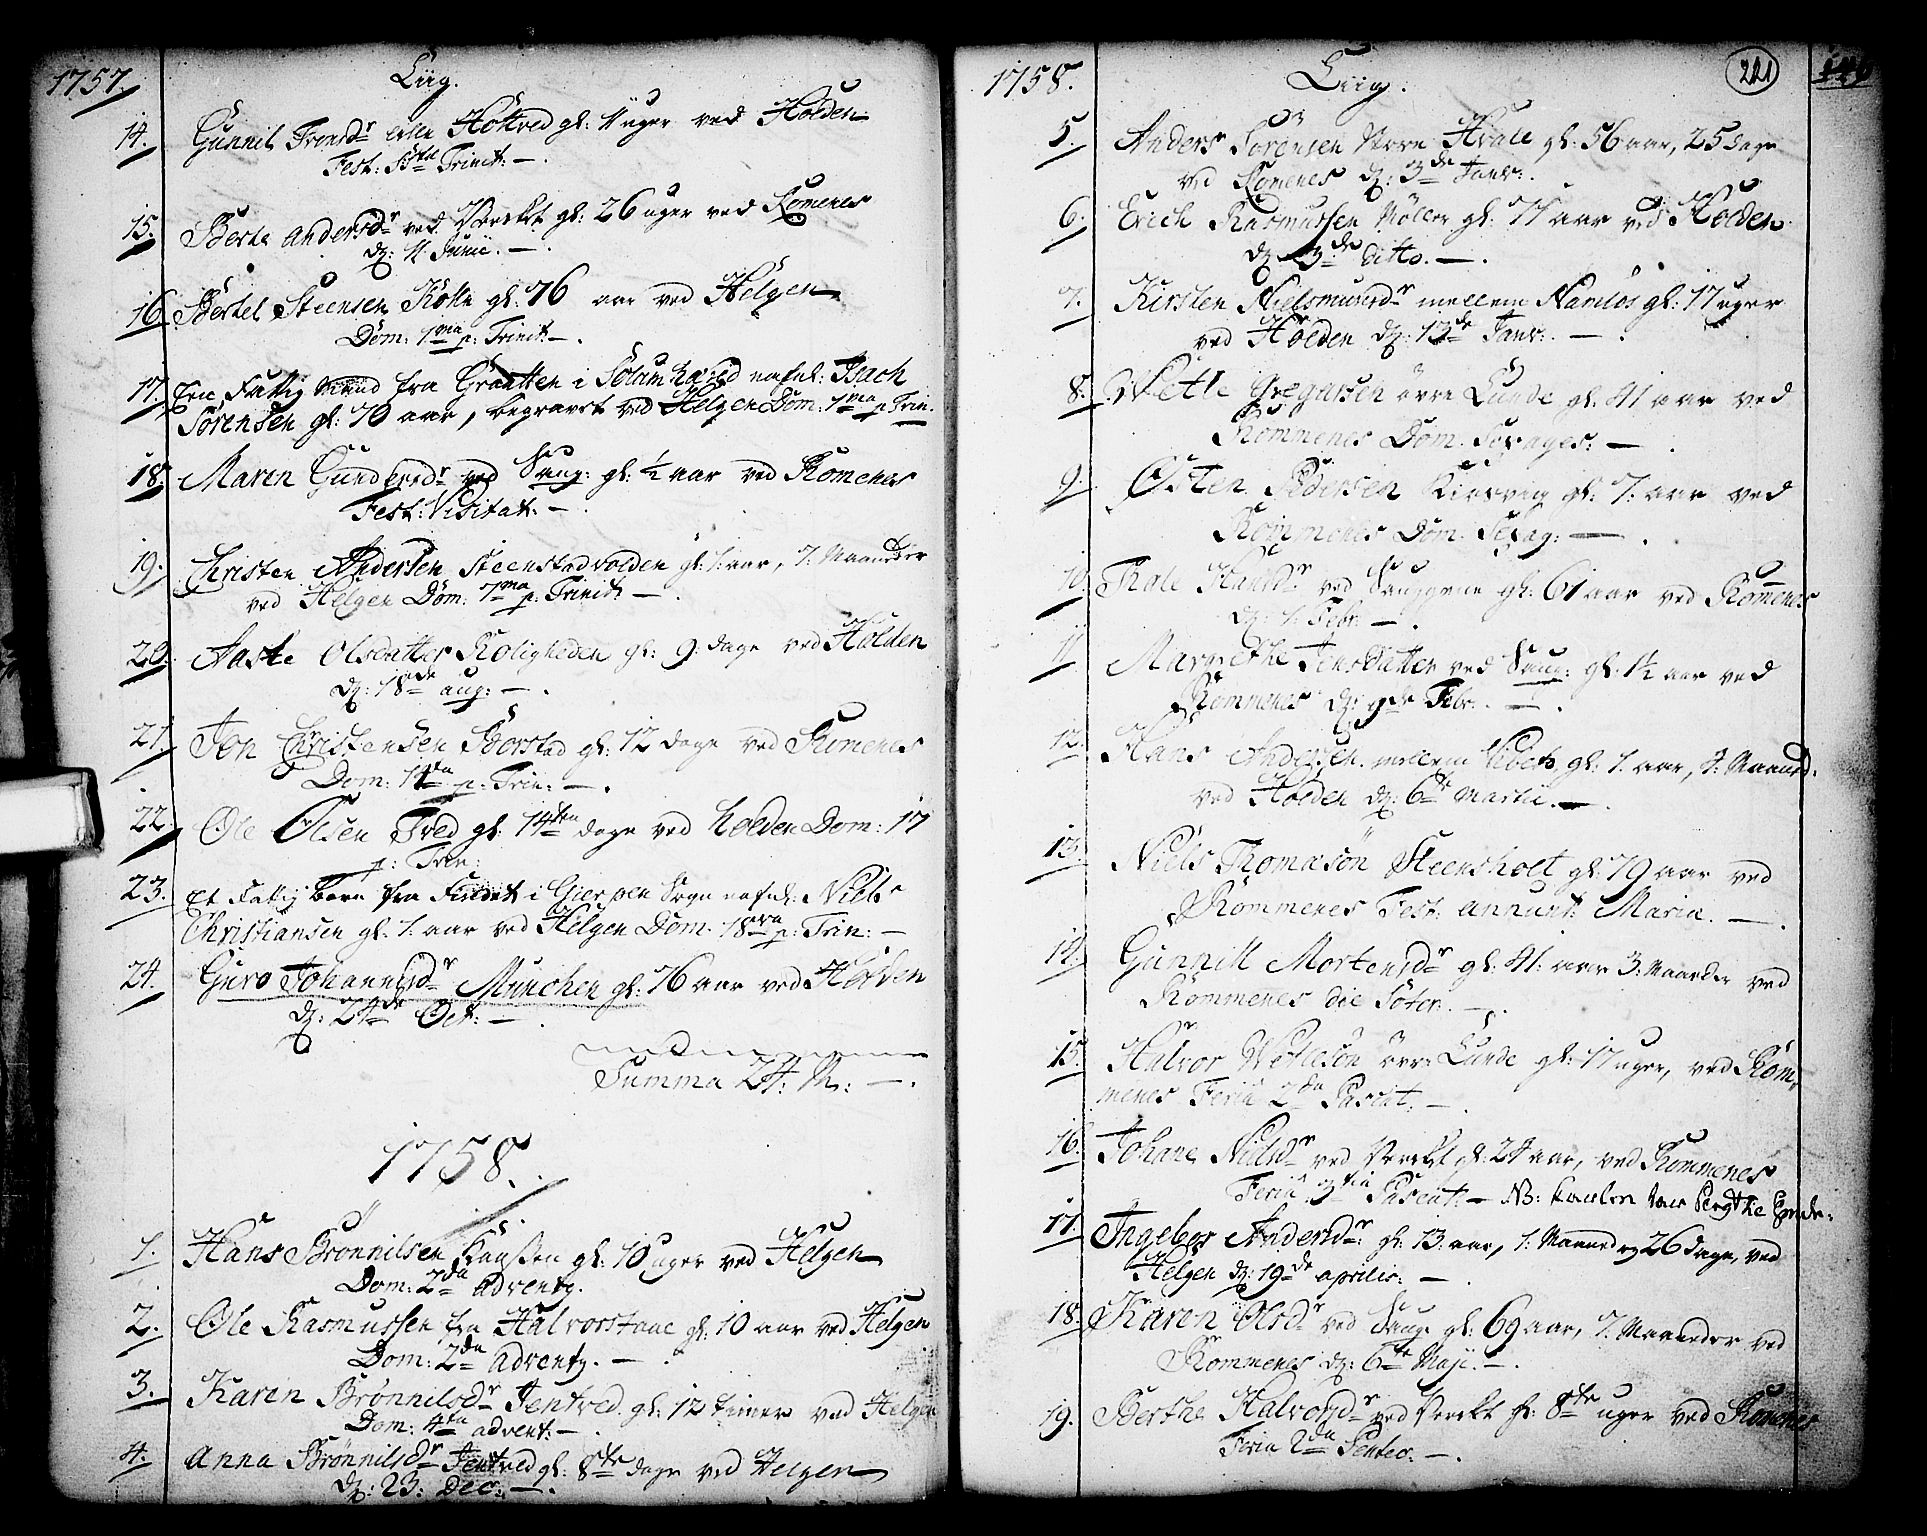 1757.
Liig.
14. Gunnil Tronsdr Höttved gl: 11 uger ved Holden
Fest: SStæ Trinit: —.
15. Berte Andersdr ved Verckt gl: 26 uger ved Romenes
dn: 11 Junii. —.
16. Bertel Steensen Kolle gl: 76 aar ved Helgen
Dom: 1ma p: Trinit: —.
17. Een Fattig Mand fra Graatten i Solum nafnl: Isach
Sörensen gl: 70 aar, begravet ved Helgen Dom: 1ma p Trin.
18. Maren Gundersdr ved Saug: gl: ½ aar ved Romenes
Fest: Visitat: —.
19. Christen Andersen Steenstadvolden gl: 1: aar, 7: Maaneder
ved Helgen Dom: 7ma p: Trinit: —.
20. Aaste Olsdatter Roligheden gl: 9: dage ved Holden
dn: 18de aug: —.
21. Jon Christensen Borstad gl: 12 dage ved Romenes
Dom: 11ta p: Trin: —.
22. Ole Olsen Tved gl: 14ten dage ved Holden Dom: 17
p: Trin:
23. Et Fattig barn fra i Gierpen Sogn nafnl: Niels
Christiansen gl: 1: aar ved Helgen Dom: 18va p: Trin: —
24. Guro Johannesdr München gl: 76 aar ved Holden
dn: 24de Oct: —.
Summa 24: N: —.
1758.
1. Hans Brönnilsen Kaassen gl: 10 uger ved Helgen
Dom: 2da adventg.
2. Ole Rasmussen fra Halvorstane gl: 10 aar ved Helgen
Dom: 2da adventg. —.
3. Karen Brönnilsdr Jentved gl: 12 timer ved Helgen
Dom: 4ta advent: —.
4. Anna Brönnilsdr Jentved gl: 8te dage ved Helgen
dn: 23: Dec: —.
1758.
Liig.
221
5. Anders Sörensen Store Hvale gl: 56 aar, 25 dage
ved Romenes dn: 3de Janv:.
6. Erich Rasmussen Möller gl: 77 aar ved Holden
dn 3de ditto. —.
7. Kirsten Nielsmundsdr mellem Namlos gl: 17 uger
ved Holden dn: 13de Janv: —.
8. Wetle Gregersen övre Lunde gl: 41 aar ved
Rommenes Dom. —.
9. Östen Pedersen gl: 7: aar ved
Rommenes Dom. Sexag: —.
10. Kale Hansdr ved Sauggene gl: 61 aar ved Romenes
dn: 1: Febr: —.
11. Margrethe Jensdatter ved Saug: gl: 1½ aar ved
Rommenes dn: 9de Febr: —.
12. Hans Andersen mellem Vibeto gl: 1. aar, 4: Maaned:
ved Holden dn: 6te Martii. —.
13. Niels Thomasön Steensholt gl: 79 aar ved
Rommenes Fest: annunt: Mariæ. —.
14. Gunnill Mortensdr gl: 41: aar 3: Maander ved
Rommenes die Eoder. —.
15. Halvor Wetlesön övre Lunde gl: 17 uger, ved Rom-
menes Feria 2da Pascat: —.
16. Johane Nielsdr ved Verckt gl: 24 aar, ved Rommenes
Feria 3tia Pascat: — NB:
17. Ingebor Andersdr: gl: 13: aar, 1: Maaned og 26 dage, ved
Helgen dn: 19de aprilis: —.
18. Karen Olsdr ved Sauge gl: 69 aar, 7: Maaneder ved
Rommenes dn: 6te Maji —.
19. Berthe Halvorsdr ved Verckt gl: 8te uger ved Romenes
Feria 2da Pentec: —.